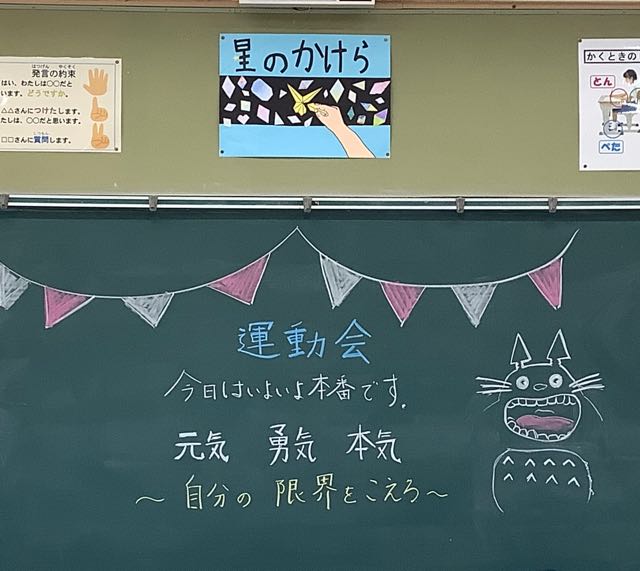 星のかけら
はつげん やくそく
発言の約束
はい、わたしは○○だと
います。どうですか。
△△さんにつけたします。
たしは、○○だと思います。
しつもん
□□さんに質問します。
かくときの
とん
ぺた
運動会
今日はいよいよ本番です。
元気 勇気 本気
～自分の限界をこえろ～